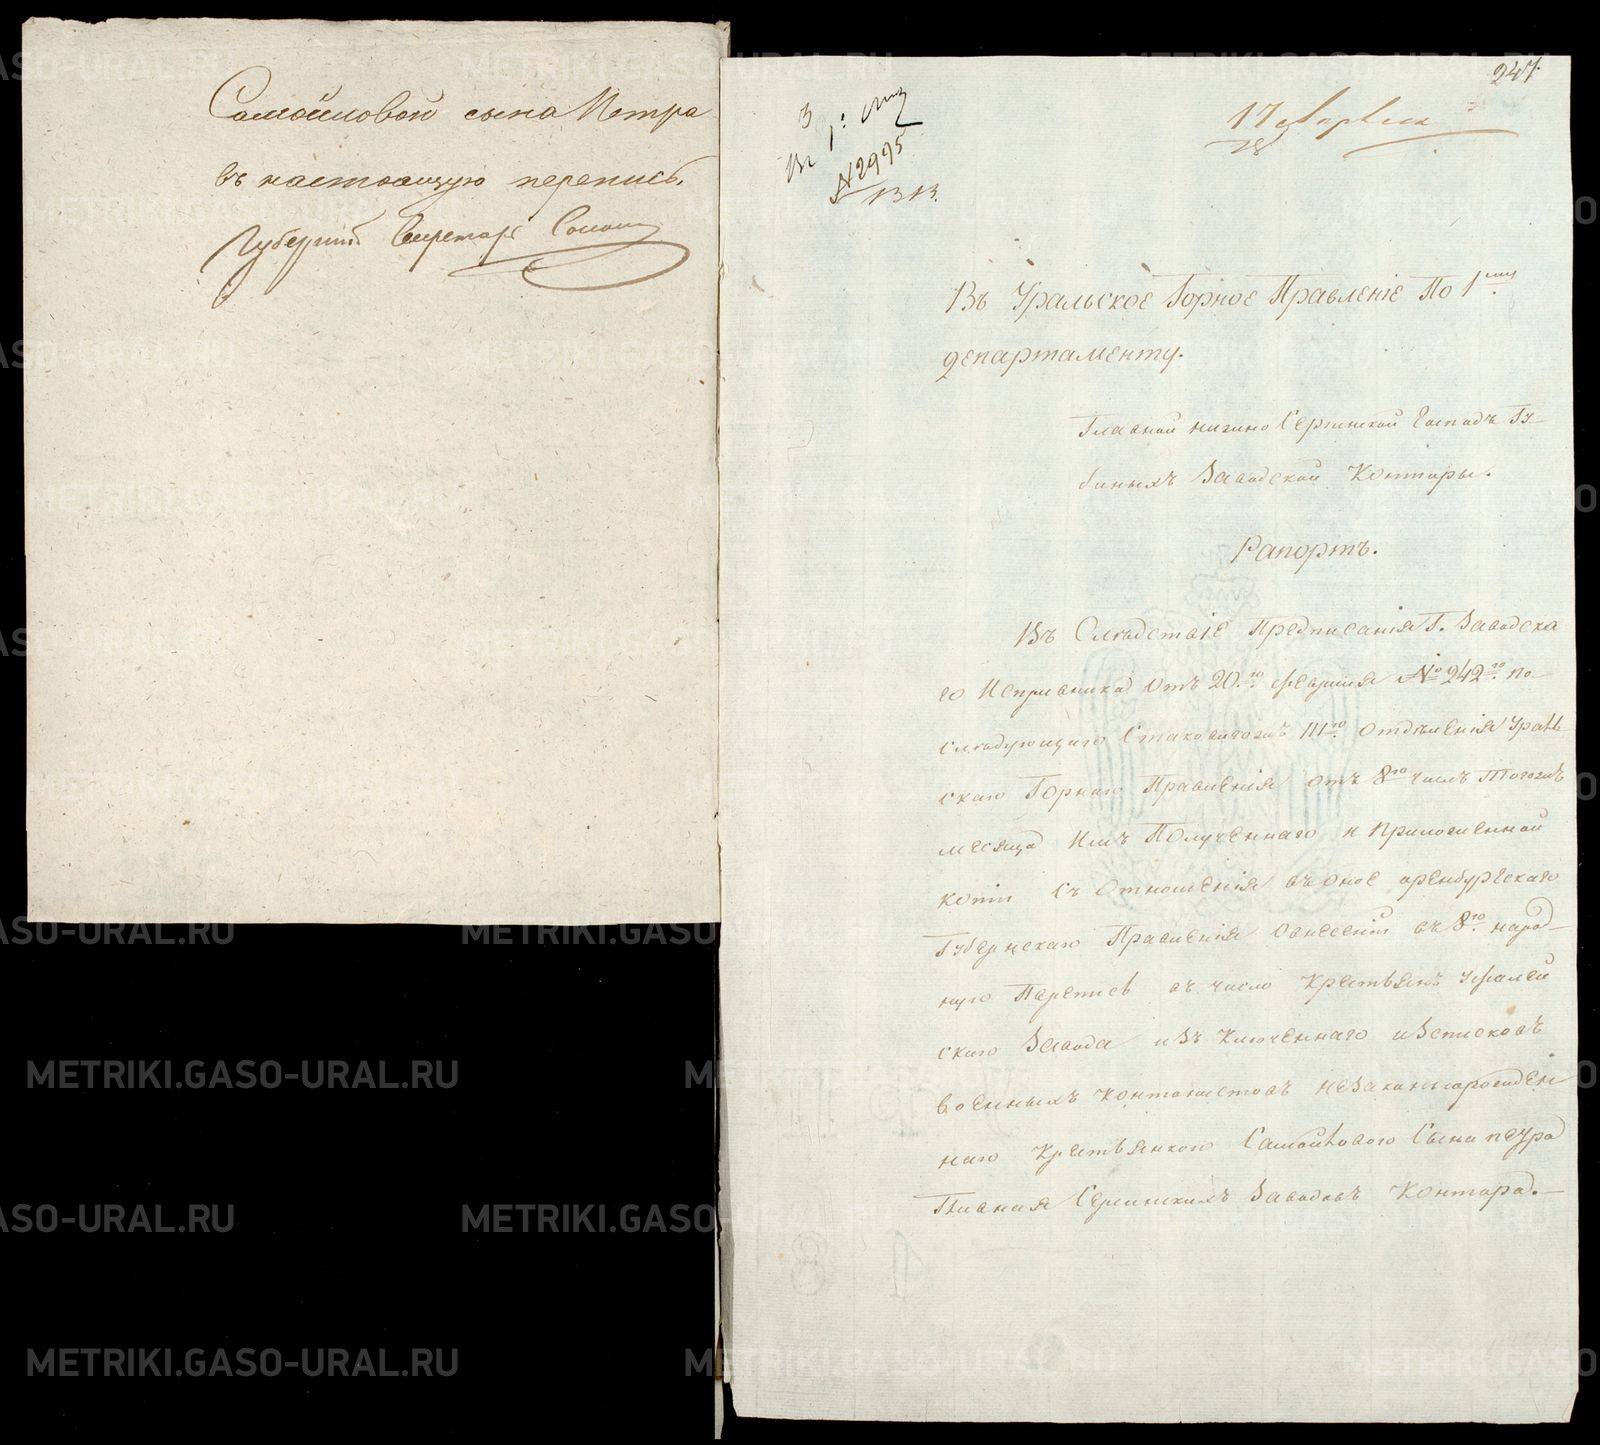 Самойловой сына Петра
въ настоящую перепись.
Губернскій Секретарь
247.
17 апреля
№ 2995
1313.
Въ Уральское Горное Правленіе По 1му
департаменту.
Главной нижно Сергинской Господъ Гу-
биныхъ Заводской Конторы.
Рапортъ.
Въ Следствіе Предписанія Г. Заводска
го Исправника Отъ 20.го февраля № 242го. по
следующаго Стаковичомъ III.го Отделенія Ураль
скаго Горнаго Правленія отъ 8го числъ Тогожъ
месяца Имъ Полученнаго и Приложенной
копіи Съ Отношенія въ оное оренбургскаго
Губернскаго Правленія Овнесеніи въ 8.ю народ-
ную Перепись въ число Крестьянъ Уфалей
скаго Завода изъ Ключеннаго изъ списковъ
военныхъ Контонистовъ незаконнорожден
наго Крестьянкою Самойловою Сына петра
Главная Сергинскихъ Заводовъ Контора.